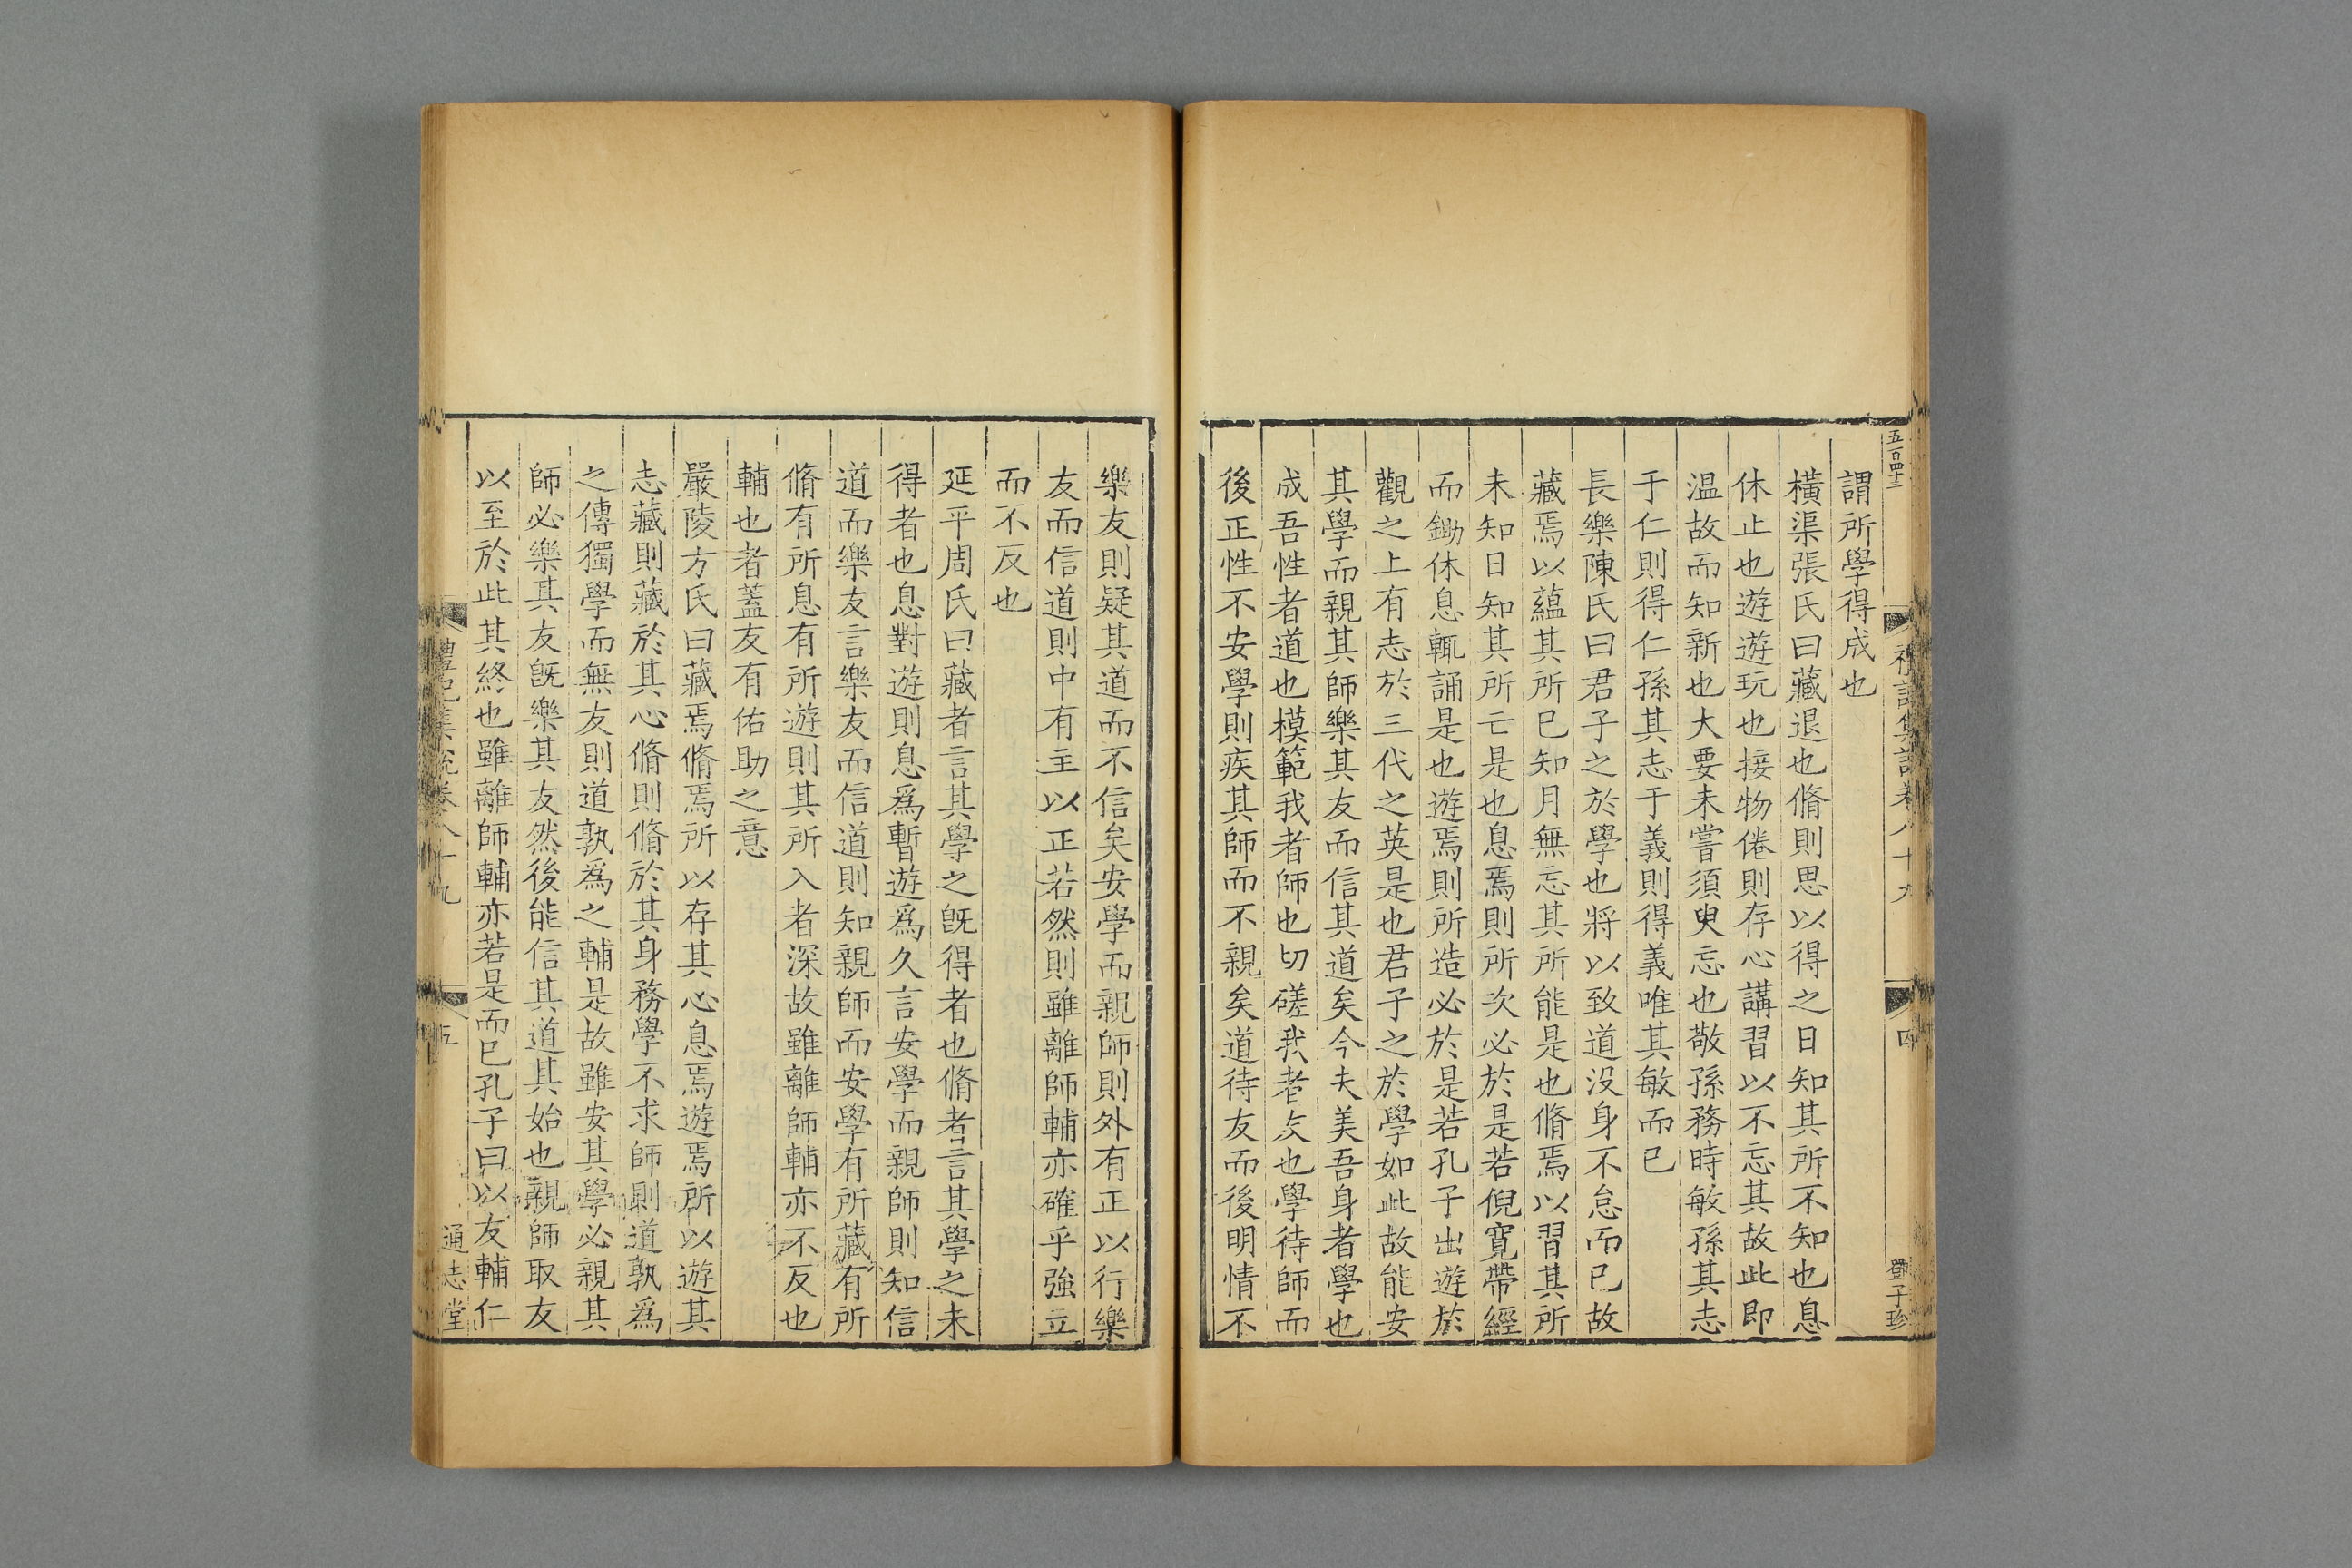 五百四十三
禮記集說卷八十九
四
鄧子珍
謂所學得成也
橫渠張氏曰藏退也脩則思以得之日知其所不知也息
休止也遊遊玩也接物倦則存心講習以不忘其故此即
温故而知新也大要未嘗須臾忘也敬孫務時敏孫其志
于仁則得仁孫其志于義則得義唯其敏而已
長樂陳氏曰君子之於學也將以致道没身不怠而已故
藏焉以蘊其所已知月無忘其所能是也脩焉以習其所
未知日知其所亡是也息焉則所次必於是若倪寬帶經
而鋤休息輒誦是也遊焉則所造必於是若孔子出遊於
觀之上有志於三代之英是也君子之於學如此故能安
其學而親其師樂其友而信其道矣今夫美吾身者學也
成吾性者道也模範我者師也切磋我者友也學待師而
後正性不安學則疾其師而不親矣道待友而後明情不
樂友則疑其道而不信矣安學而親師則外有正以行樂
友而信道則中有主以正若然則雖離師輔亦確乎強立
而不反也
延平周氏曰藏者言其學之旣得者也脩者言其學之未
得者也息對遊則息爲暫遊爲久言安學而親師則知信
道而樂友言樂友而信道則知親師而安學有所藏有所
脩有所息有所遊則其所入者深故雖離師輔亦不反也
輔也者蓋友有佑助之意
嚴陵方氏曰藏焉脩焉所以存其心息焉遊焉所以遊其
志藏則藏於其心脩則脩於其身務學不求師則道孰爲
之傳獨學而無友則道孰爲之輔是故雖安其學必親其
師必樂其友旣樂其友然後能信其道其始也親師取友
以至於此其終也雖離師輔亦若是而已孔子曰以友輔仁
禮記集說卷八十九
五
通志堂